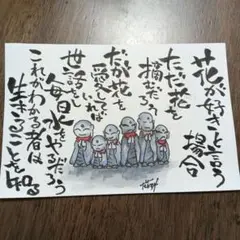 花が好きと言う
場合
ただ花を
摘むだろう
だが花を
愛して
いれば
世話をし
毎日水をやるだろう
これがわかる者は
生きることを知る